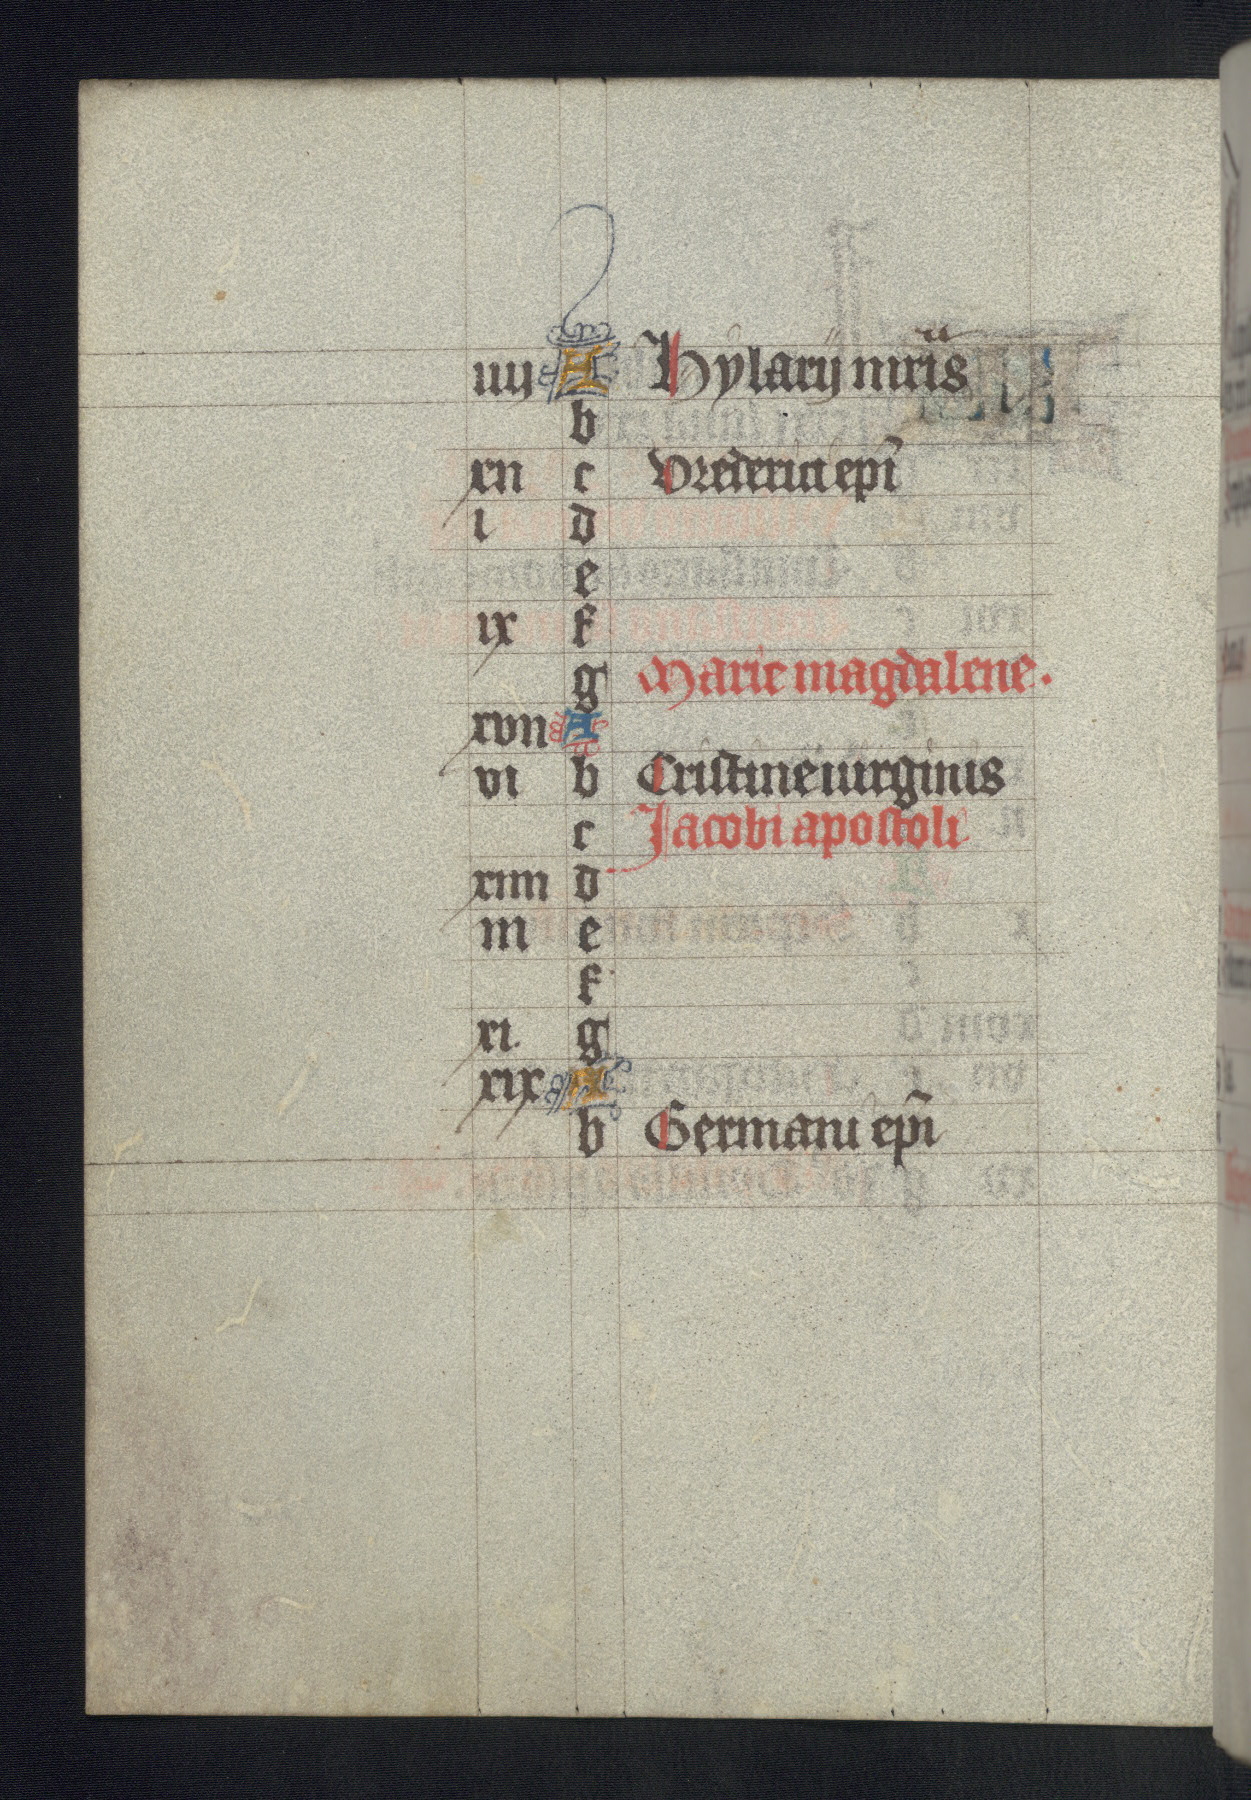 iiij A Hylarij mr̄is
b
xij c Vrederici ep̄i
i d
e
ix f
g Marie magdalene.
xvij A
vi b Cristine uirginis
c Jacobi apostoli
xiiij d
iij e
f
xi. g
xix A
b Germani ep̄i